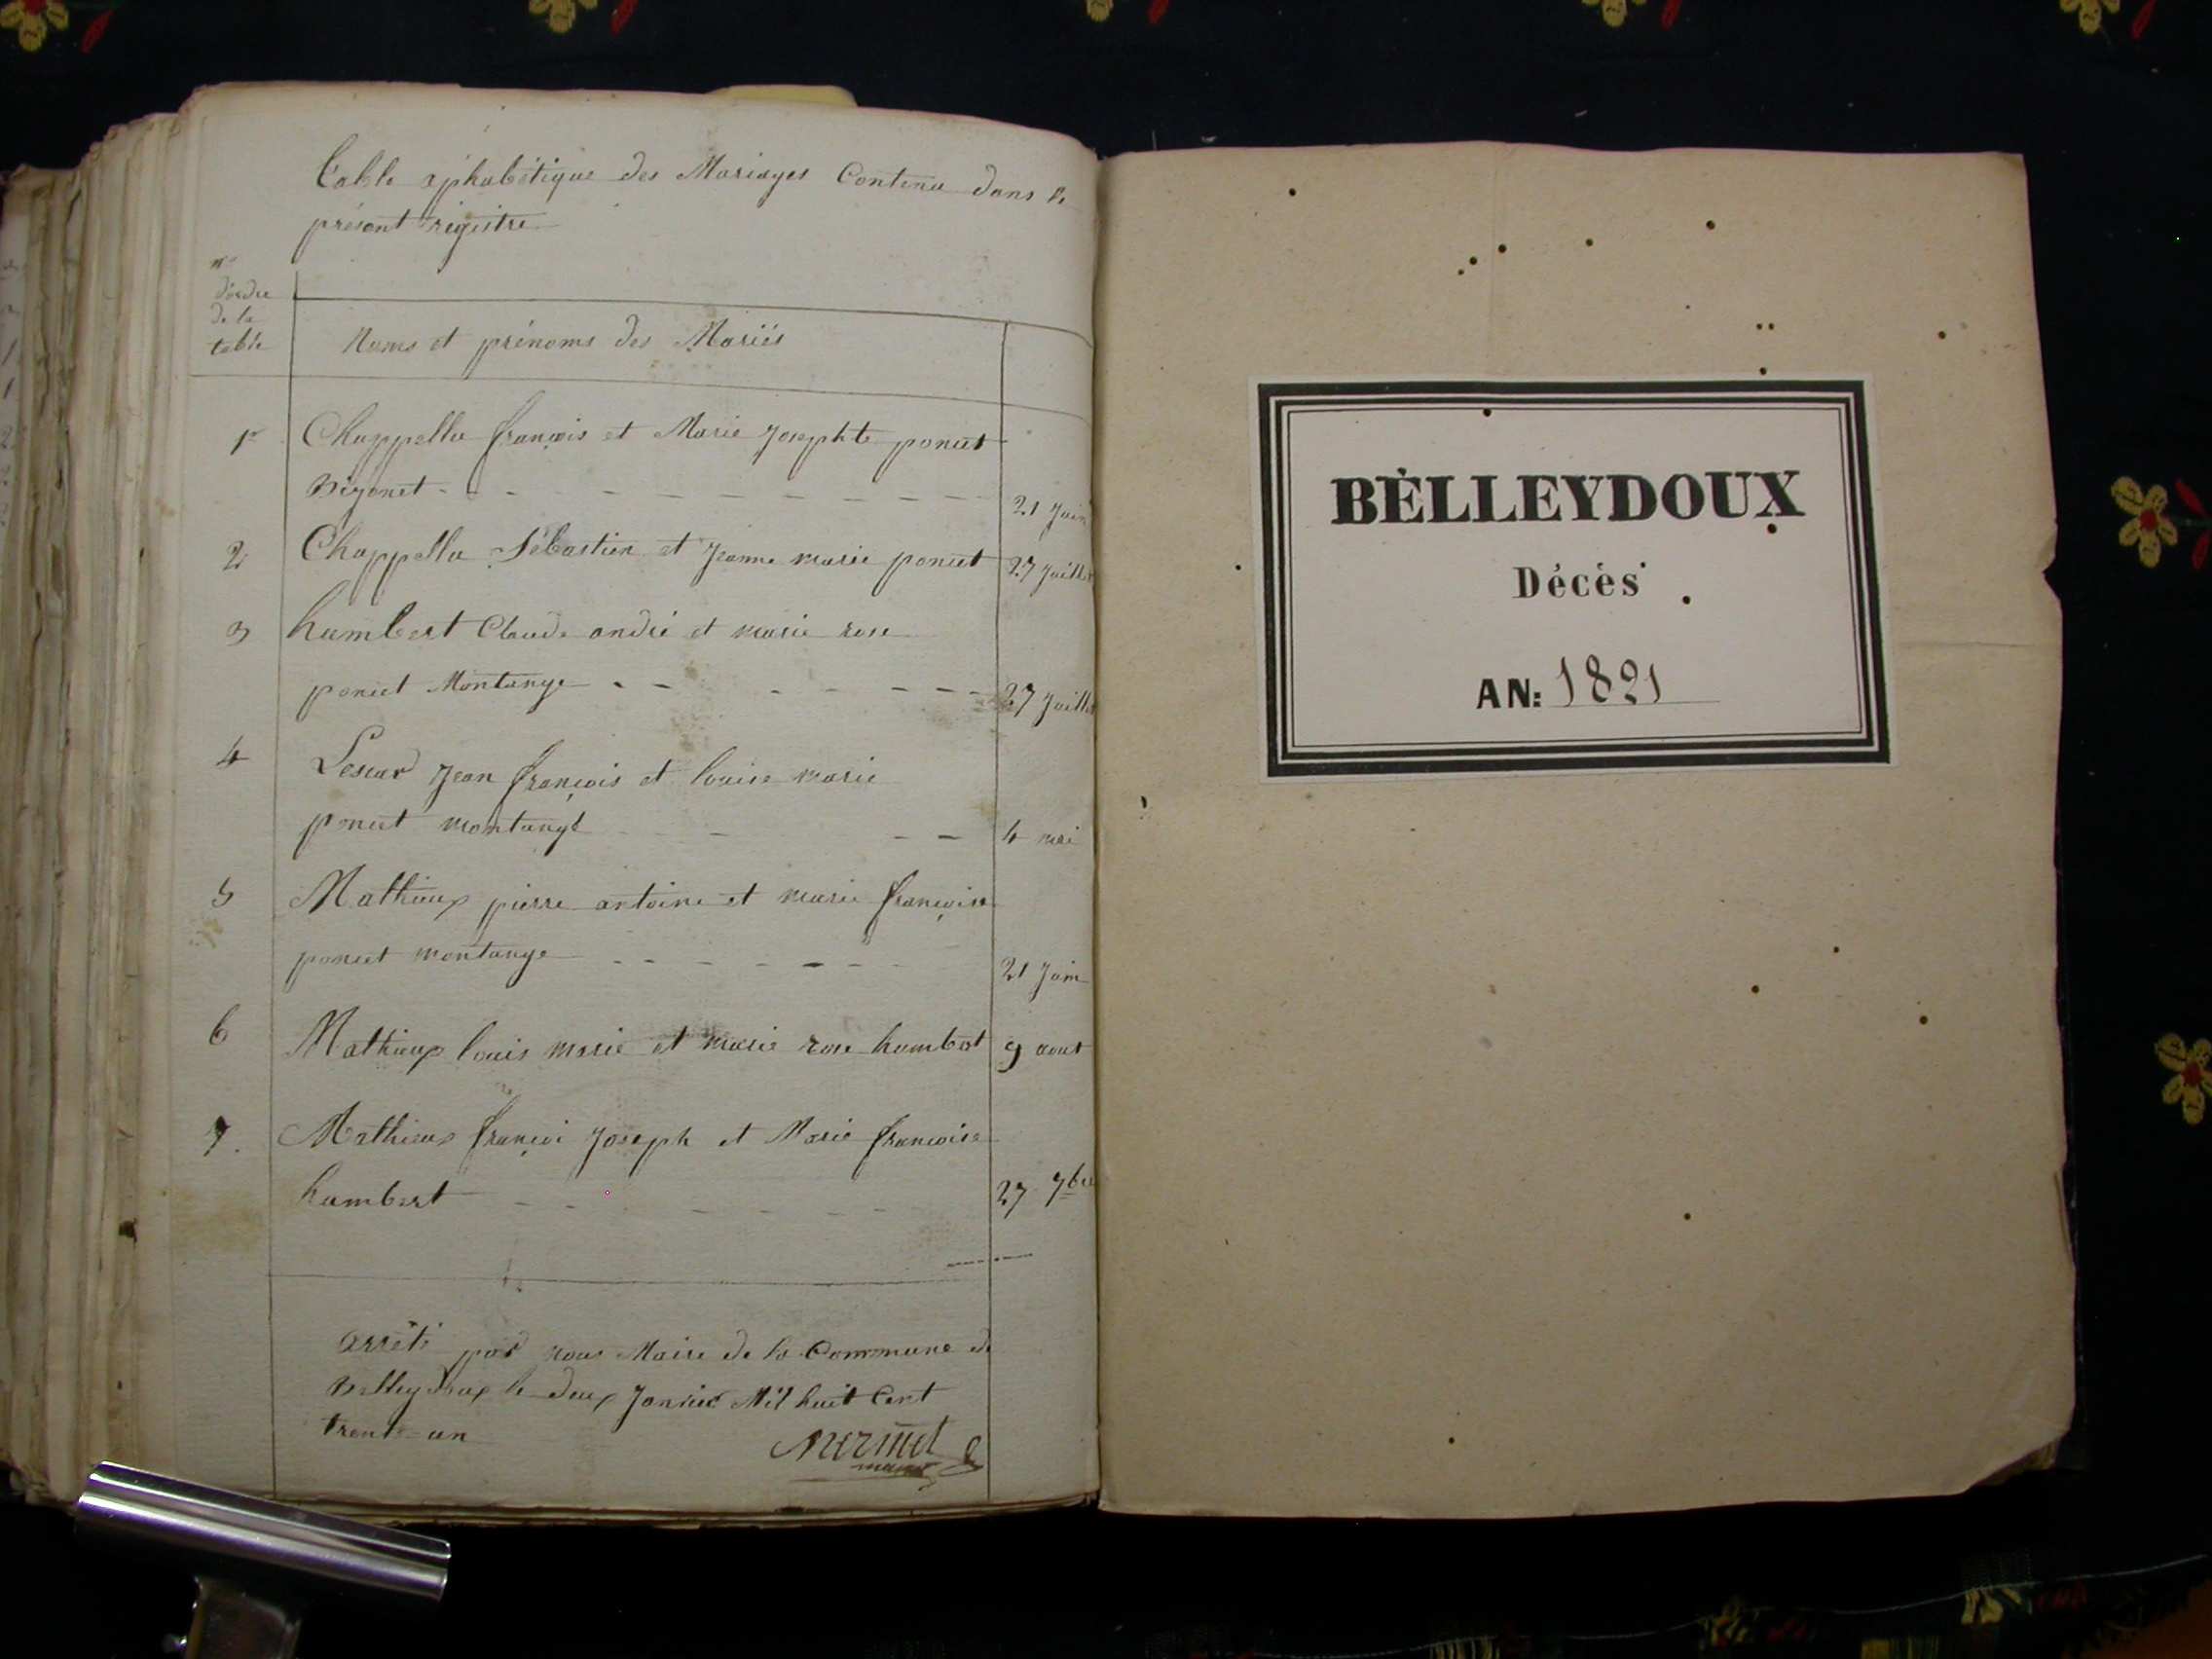 Table alphabétique des Mariages Contenu dans le
présent régistre
n°
d'ordre
de la
table
Noms et prénoms des Mariés
1er Chappellu françois et Marie Josephte poncet
Bézonet 21 Juin
2 Chappellu Sébastien et Jeanne marie poncet 27 Juillet
3 humbert Claude andré et marie rose
poncet Montange 27 Juillet
4 Lescar Jean françois et louise marie
poncet montange 4 mai
5 Mathieux pierre antoine et marie françoise
poncet montange 21 Juin
6 Mathieux louis marie et marie rose humbert 9 aout
7. Mathieux françoi Joseph et Marie francoise
humbert 27 7bre
arrêté par nous Maire de la Commune de
Belleydoux le deux Janvier Mil huit Cent
trente-un
Mermet
maire
BELLEYDOUX
Décès
AN: 1821